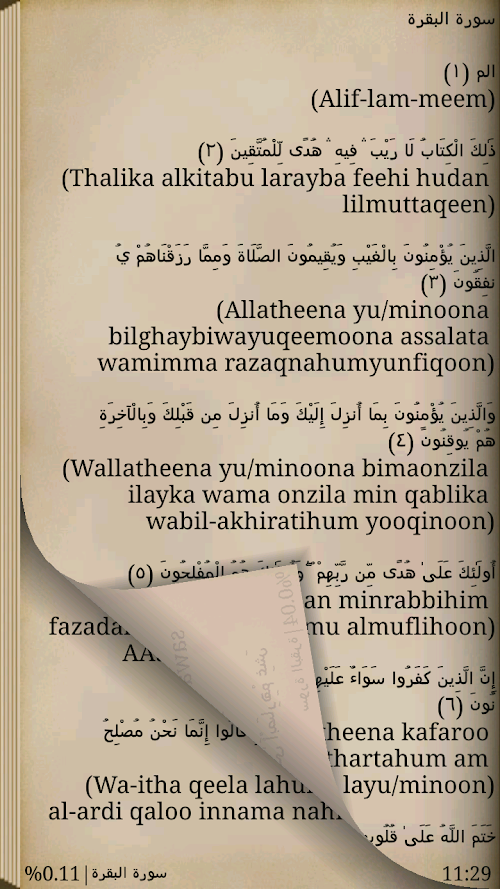 سورة البقرة
الم (١)
(Alif-lam-meem)
ذَٰلِكَ الْكِتَابُ لَا رَيْبَ ۛ فِيهِ ۛ هُدًى لِّلْمُتَّقِينَ (٢)
(Thalika alkitabu larayba feehi hudan
lilmuttaqeen)
الَّذِينَ يُؤْمِنُونَ بِالْغَيْبِ وَيُقِيمُونَ الصَّلَاةَ وَمِمَّا رَزَقْنَاهُمْ يُ
نفِقُونَ (٣)
(Allatheena yu/minoona
bilghaybiwayuqeemoona assalata
wamimma razaqnahumyunfiqoon)
وَالَّذِينَ يُؤْمِنُونَ بِمَا أُنزِلَ إِلَيْكَ وَمَا أُنزِلَ مِن قَبْلِكَ وَبِالْآخِرَةِ
هُمْ يُوقِنُونَ (٤)
(Wallatheena yu/minoona bimaonzila
ilayka wama onzila min qablika
wabil-akhiratihum yooqinoon)
أُولَٰئِكَ عَلَىٰ هُدًى مِّن رَّبِّهِمْ ۖ الْمُفْلِحُونَ (٥)
minrabbihim
almuflihoon)
إِنَّ الَّذِينَ كَفَرُوا سَوَاءٌ
نُونَ (٦)
إِنَّمَا نَحْنُ مُصْلِحُ
kafaroo
am
(Wa-itha qeela layu/minoon)
al-ardi qaloo innama
خَتَمَ اللَّهُ عَلَىٰ
%0.11|سورة البقرة 11:29